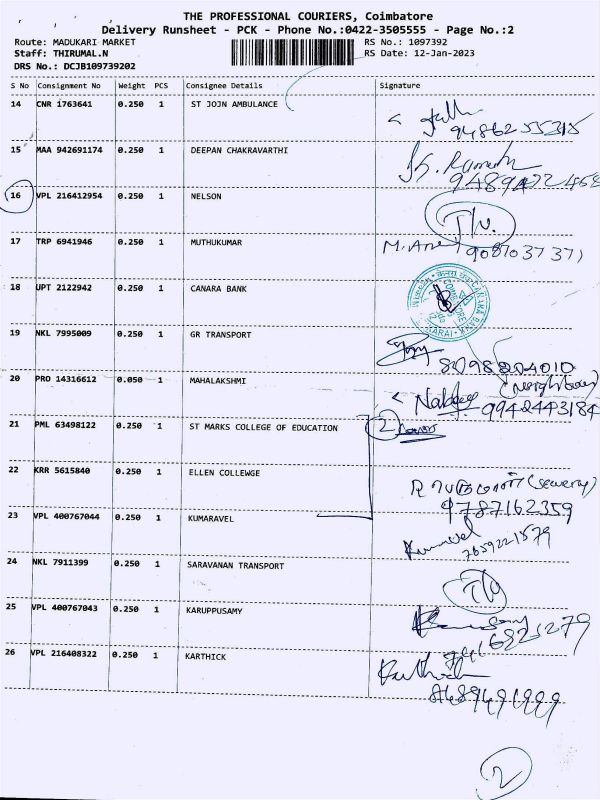 THE PROFESSIONAL COURIERS, Coimbatore
Delivery Runsheet - PCK - Phone No.:0422-3505555 - Page No.:2
Route: MADUKARI MARKET RS No.: 1097392
Staff: THIRUMAL.N RS Date: 12-Jan-2023
DRS No.: DCJB109739202
S No Consignment No Weight PCS Consignee Details Signature
14 CNR 1763641 0.250 1 ST JOJN AMBULANCE
9486255315
15 MAA 942691174 0.250 1 DEEPAN CHAKRAVARTHI
16 VPL 216412954 0.250 1 NELSON
17 TRP 6941946 0.250 1 MUTHUKUMAR
9087037371
18 UPT 2122942 0.250 1 CANARA BANK
CANARA BANK
19 NKL 7995009 0.250 1 GR TRANSPORT
8098804010
20 PRO 14316612 0.050 1 MAHALAKSHMI
9942443184
21 PML 63498122 0.250 1 ST MARKS COLLEGE OF EDUCATION 2
22 KRR 5615840 0.250 1 ELLEN COLLEWGE
9787162359
23 VPL 400767044 0.250 1 KUMARAVEL
7659221579
24 NKL 7911399 0.250 1 SARAVANAN TRANSPORT
25 VPL 400767043 0.250 1 KARUPPUSAMY
26 VPL 216408322 0.250 1 KARTHICK
Karthick
8489491999
2